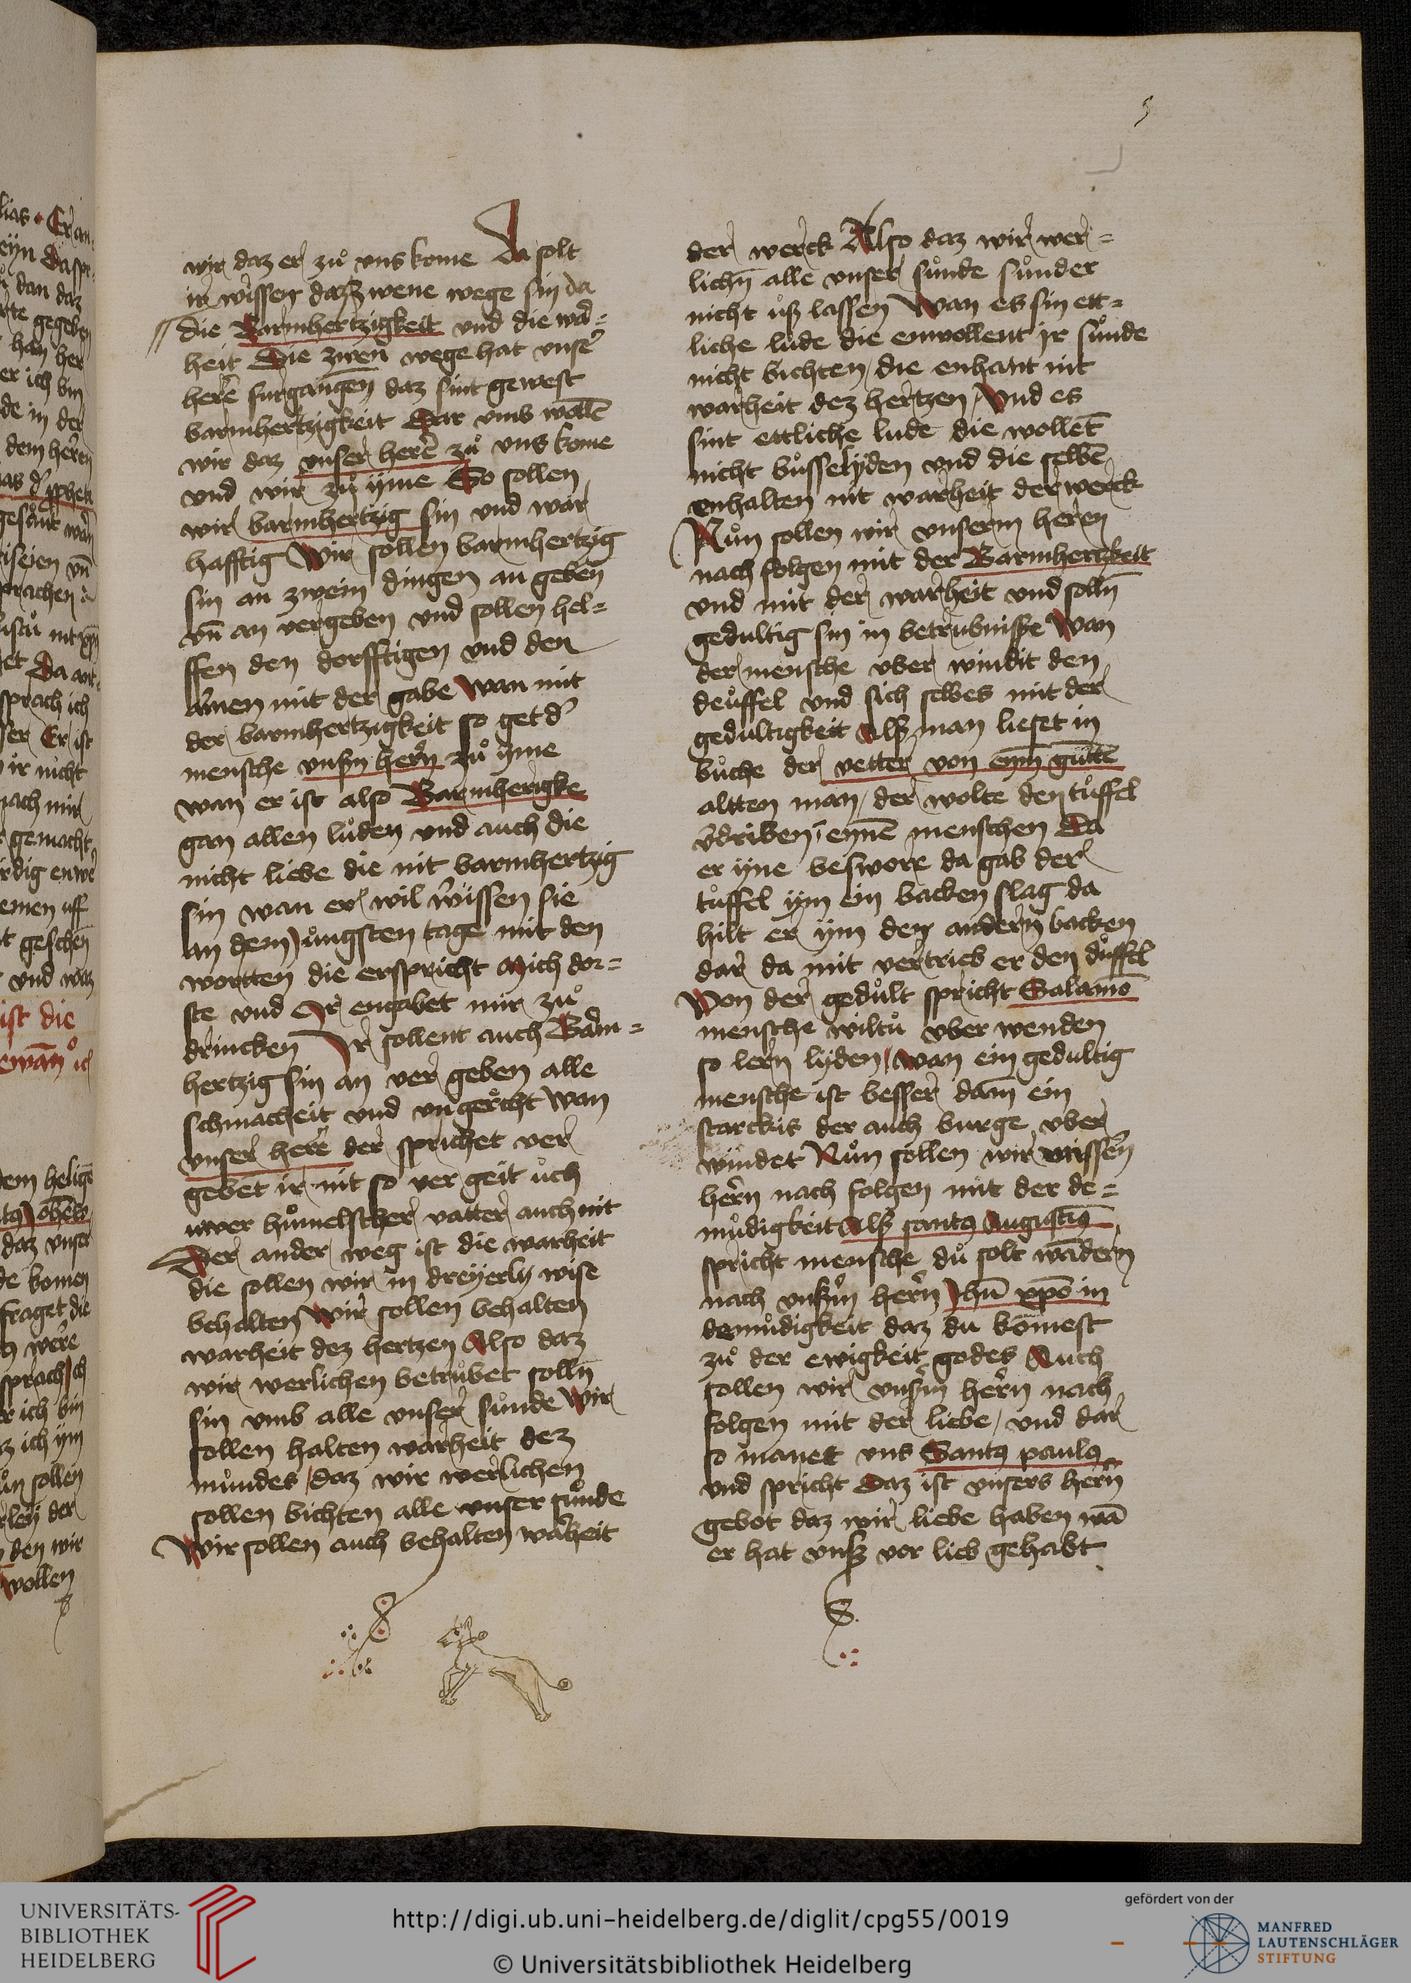 5
wir daz er zů vns kome Da solt
ir wissen daz zwene wege sin da
die Barmhertzigkeit vnd die war=
heit Die zwen wege hat vnser
herē furgangen daz sint gewest
barmhertzigkeit Dar vmb wollē
wir daz vnser herē zů vns kome
vnd wir zů yme So sollen
wir barmhertzig sin vnd war
hafftig Wir sollen barmhertzig
sin an zwein dingen an geben
vn̄ an vergeben vnd sollen hel=
ffen den dorfftigen vnd den
armen mit der gabe wan mit
der barmhertzigkeit so get d'
mensche vnßm hern zů yme
wan er ist also Barmherigke
gan allen lůden vnd auch die
nicht liebe die nit barmhertzig
sin wan er wil v'wissen sie
an dem jůngsten tage mit den
wortten die er spricht Mich dor=
ste vnd Ir engabet mir zů
drincken Ir sollent auch Barm=
hertzig sin an ver geben alle
schmacheit vnd vngerecht wan
vnser herē der sprichet ver
gebent ir nit so ver geit ůch
uwer hůmelscher vatter auch nit
Der ander weg ist die warheit
die sollen wir in dreyerly wise
behalten Wir sollen behalten
warheit dez hertzen Also daz
wir werlichen betrůbet solln̄
sin vmb alle vnser sůnde Wir
sollen halten warheit dez
mundes daz wir werlichen
sollen bichten alle vnser sůnde
Wir sollen auch behalten warheit
der werck Also daz wir wer=
lichn̄ alle vnser sůnde sůnder
nicht ůß lassen Wan es sin ett=
liche lude die enwollent ir sůnde
nicht bichten die enhant nit
warheit dez hertzen Vnd es
sint ettliche lude die wollet̄
nicht bůsse lyden vnd die selbē
enhalten nit warheit der werck
Nůn sollen wir vnserm heren
nach folgen mit der Barmhertzkeit
vnd mit der warheit vnd solln̄
gedultig sin in betrubnisse Wan
der mensche vber windit den
deůffel vnd sich selbes mit der
gedultigkeit Alß man lieset in
bůche der vetter von eym gůttē
altten man der wolte den tůffel
v'driben ī eynē menschen Da
er yne beswore da gab der
tůffel ym ein backen slag da
hilt er ym den andern backen
dar da mit vertrieb er den důffel
Von der gedůlt spricht Salamō
mensche wiltů vber wenden
so lern lyden wan ein gedultig
mensche ist besser dann ein
starckis der auch burge vber
windet Nůn sollen wir vnssern
hern nach folgen mit der de=
můdigkeit Alß santꝰ Augustiꝰ
spricht mensche du solt wādern
nach vnßm hern Jhū xp̄o in
demůdigkeit daz du kōmest
zů der ewigkeit godes Auch
sollen wir vnßm hern nach
folgen mit der liebe vnd dar
so manet vns Santꝰ paulꝰ
vnd spricht Daz ist vnsers hern̄
gebot daz wir liebe haben wā
er hat vnß vor lieb gehabt
UNIVERSITÄTS-
BIBLIOTHEK
HEIDELBERG
http://digi.ub.uni-heidelberg.de/diglit/cpg55/0019
© Universitätsbibliothek Heidelberg
gefördert von der
MANFRED
LAUTENSCHLÄGER
STIFTUNG